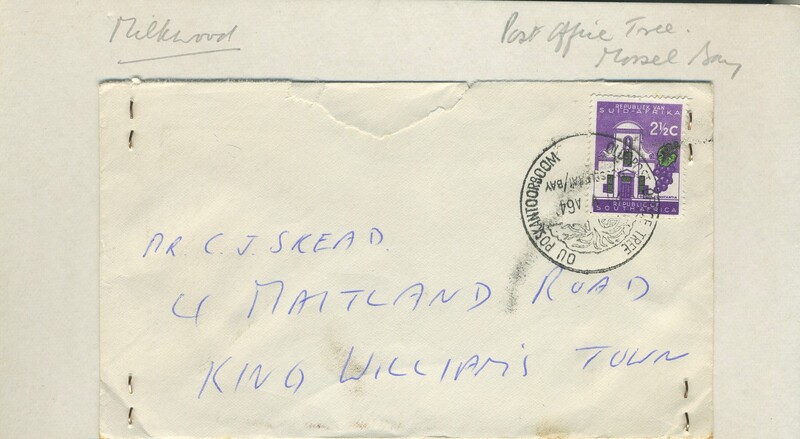 Milkwood
Post Office Tree.
Mossel Bay
REPUBLIEK VAN
SUID-AFRIKA
2½C
REPUBLIC OF
SOUTH AFRICA
OU POSKANTOORBOOM
TREE
/BAY
MR. C. J. SKEAD.
4 MAITLAND ROAD
KING WILLIAM'S TOWN